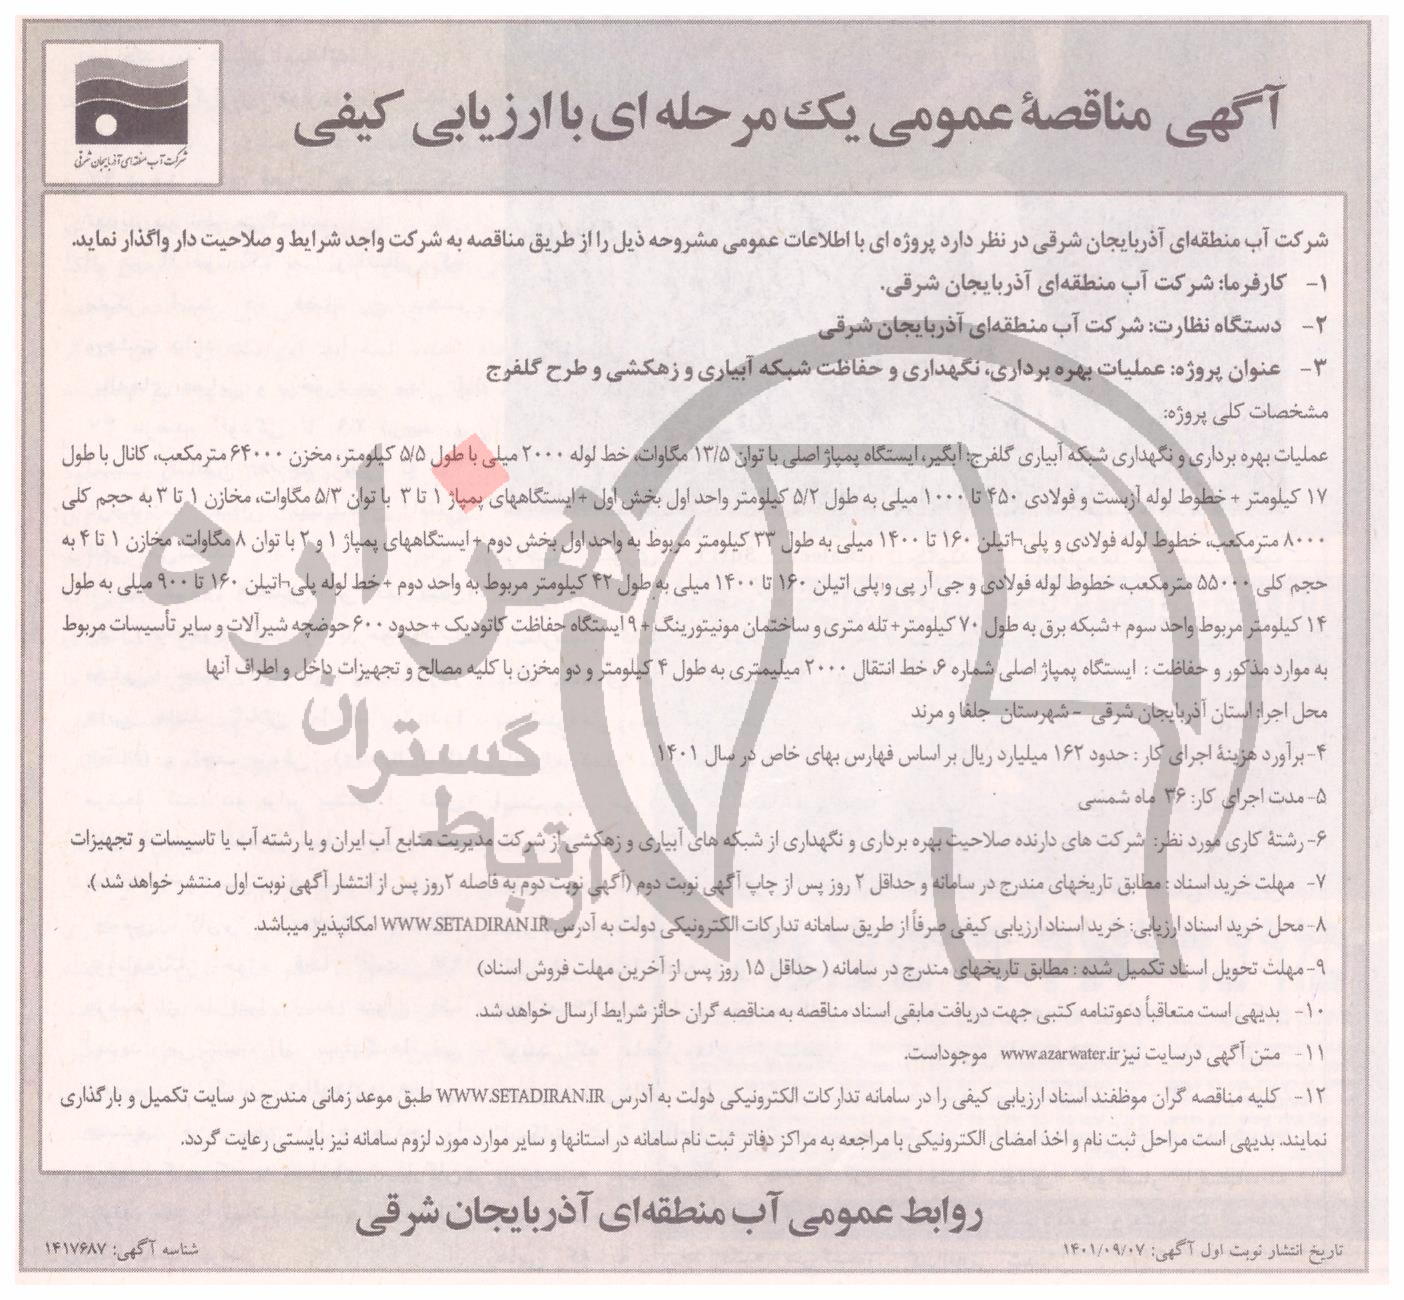 آگهی مناقصهٔ عمومی یک مرحله ای با ارزیابی کیفی
شرکت آب منطقه‌ای آذربایجان شرقی
شرکت آب منطقه‌ای آذربایجان شرقی در نظر دارد پروژه ای با اطلاعات عمومی مشروحه ذیل را از طریق مناقصه به شرکت واجد شرایط و صلاحیت دار واگذار نماید.
۱- کارفرما: شرکت آب منطقه‌ای آذربایجان شرقی.
۲- دستگاه نظارت: شرکت آب منطقه‌ای آذربایجان شرقی
۳- عنوان پروژه: عملیات بهره برداری، نگهداری و حفاظت شبکه آبیاری و زهکشی و طرح گلفرج
مشخصات کلی پروژه:
عملیات بهره برداری و نگهداری شبکه آبیاری گلفرج: آبگیر، ایستگاه پمپاژ اصلی با توان ۱۳/۵ مگاوات، خط لوله ۲۰۰۰ میلی با طول ۵/۵ کیلومتر، مخزن ۶۴۰۰۰ مترمکعب، کانال با طول
۱۷ کیلومتر + خطوط لوله آزبست و فولادی ۴۵۰ تا ۱۰۰۰ میلی به طول ۵/۲ کیلومتر واحد اول بخش اول + ایستگاههای پمپاژ ۱ تا ۳ با توان ۵/۳ مگاوات، مخازن ۱ تا ۳ به حجم کلی
۸۰۰۰ مترمکعب، خطوط لوله فولادی و پلی¬اتیلن ۱۶۰ تا ۱۴۰۰ میلی به طول ۳۳ کیلومتر مربوط به واحد اول بخش دوم + ایستگاههای پمپاژ ۱ و ۲ با توان ۸ مگاوات، مخازن ۱ تا ۴ به
حجم کلی ۵۵۰۰۰ مترمکعب، خطوط لوله فولادی و جی آر پی و پلی اتیلن ۱۶۰ تا ۱۴۰۰ میلی به طول ۴۲ کیلومتر مربوط به واحد دوم + خط لوله پلی¬اتیلن ۱۶۰ تا ۹۰۰ میلی به طول
۱۴ کیلومتر مربوط واحد سوم + شبکه برق به طول ۷۰ کیلومتر+ تله متری و ساختمان مونیتورینگ + ۹ ایستگاه حفاظت کاتودیک + حدود ۶۰۰ حوضچه شیرآلات و سایر تأسیسات مربوط
به موارد مذکور و حفاظت : ایستگاه پمپاژ اصلی شماره ۶، خط انتقال ۲۰۰۰ میلیمتری به طول ۴ کیلومتر و دو مخزن با کلیه مصالح و تجهیزات داخل و اطراف آنها
محل اجرا: استان آذربایجان شرقی - شهرستان جلفا و مرند
۴- برآورد هزینهٔ اجرای کار : حدود ۱۶۲ میلیارد ریال بر اساس فهارس بهای خاص در سال ۱۴۰۱
۵- مدت اجرای کار: ۳۶ ماه شمسی
۶- رشتهٔ کاری مورد نظر: شرکت های دارنده صلاحیت بهره برداری و نگهداری از شبکه های آبیاری و زهکشی از شرکت مدیریت منابع آب ایران و یا رشته آب یا تاسیسات و تجهیزات
۷- مهلت خرید اسناد : مطابق تاریخهای مندرج در سامانه و حداقل ۲ روز پس از چاپ آگهی نوبت دوم (آگهی نوبت دوم به فاصله ۲روز پس از انتشار آگهی نوبت اول منتشر خواهد شد ).
۸- محل خرید اسناد ارزیابی: خرید اسناد ارزیابی کیفی صرفاً از طریق سامانه تدارکات الکترونیکی دولت به آدرس WWW.SETADIRAN.IR امکانپذیر میباشد.
۹- مهلت تحویل اسناد تکمیل شده : مطابق تاریخهای مندرج در سامانه ( حداقل ۱۵ روز پس از آخرین مهلت فروش اسناد)
۱۰- بدیهی است متعاقباً دعوتنامه کتبی جهت دریافت مابقی اسناد مناقصه به مناقصه گران حائز شرایط ارسال خواهد شد.
۱۱- متن آگهی درسایت نیز www.azarwater.ir موجوداست.
۱۲- کلیه مناقصه گران موظفند اسناد ارزیابی کیفی را در سامانه تدارکات الکترونیکی دولت به آدرس WWW.SETADIRAN.IR طبق موعد زمانی مندرج در سایت تکمیل و بارگذاری
نمایند. بدیهی است مراحل ثبت نام و اخذ امضای الکترونیکی با مراجعه به مراکز دفاتر ثبت نام سامانه در استانها و سایر موارد مورد لزوم سامانه نیز بایستی رعایت گردد.
هزاره
گستران
ارتباط
روابط عمومی آب منطقه‌ای آذربایجان شرقی
تاریخ انتشار نوبت اول آگهی: ۱۴۰۱/۰۹/۰۷
شناسه آگهی: ۱۴۱۷۶۸۷